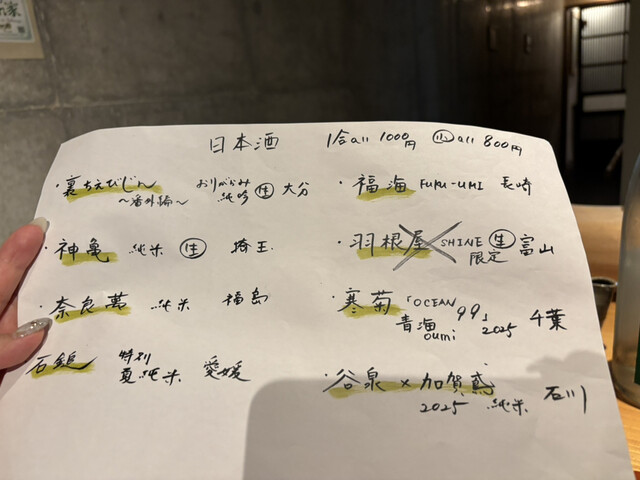 日本酒 1合all 1000円 ㊛all 800円
・裏ちえびじん おりがらみ 純吟 ㊤生 大分
～番外編～
・神亀 純米 生 埼玉
・奈良萬 純米 福島
石鎚 特別 夏純米 愛媛
・福海 FUKU-UMI 長崎
・羽根屋 SHINE 生 富山
限定
・寒菊 「OCEAN 99」 2025 千葉
青海 oumi
・谷泉×加賀鳶
2025 純米 石川